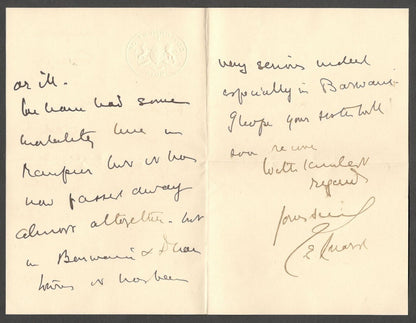 or ill.
We have had some
mortality here in
Rampur but it has
now passed away
almost altogether. but
in Barwani & Dhar
towns it has been
very serious indeed
especially in Barwani.
I hope your sister will
soon recover
With kindest
regards
yours sincy
C E Luard